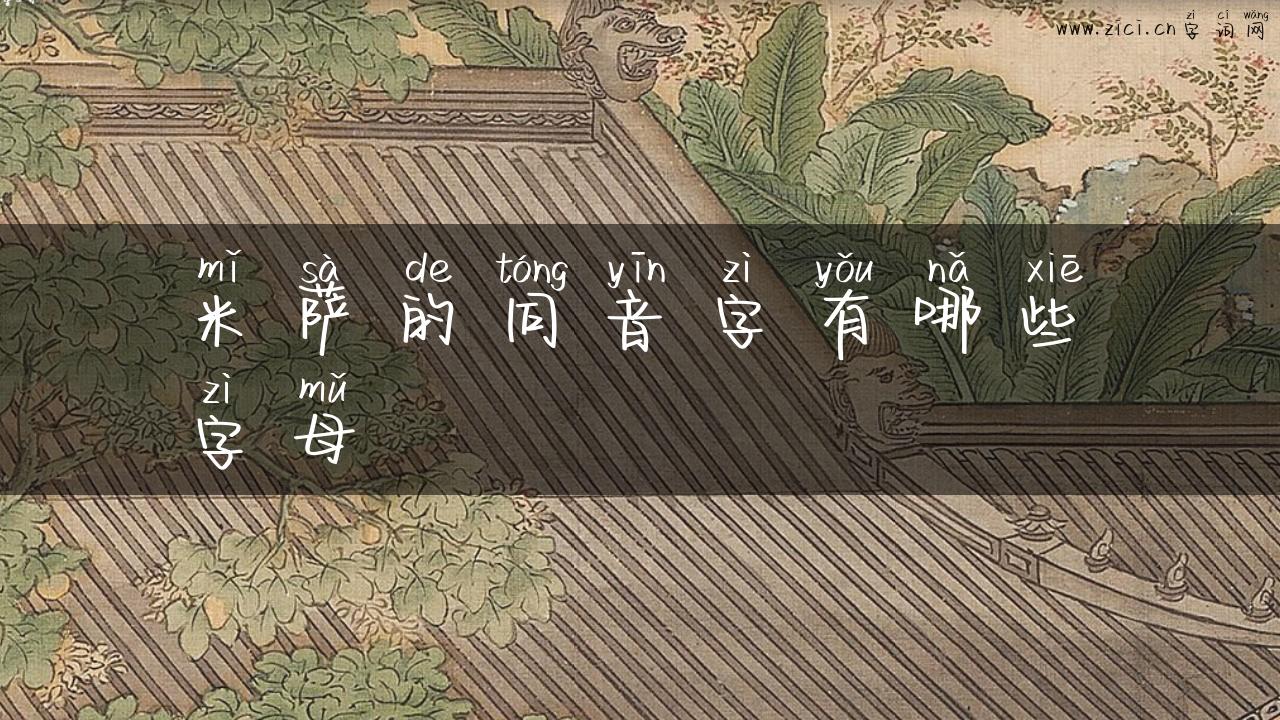 zì cí wǎng
www.zici.cn 字 词 网
mǐ sà de tóng yīn zì yǒu nǎ xiē
米 萨 的 同 音 字 有 哪 些
zì mǔ
字 母